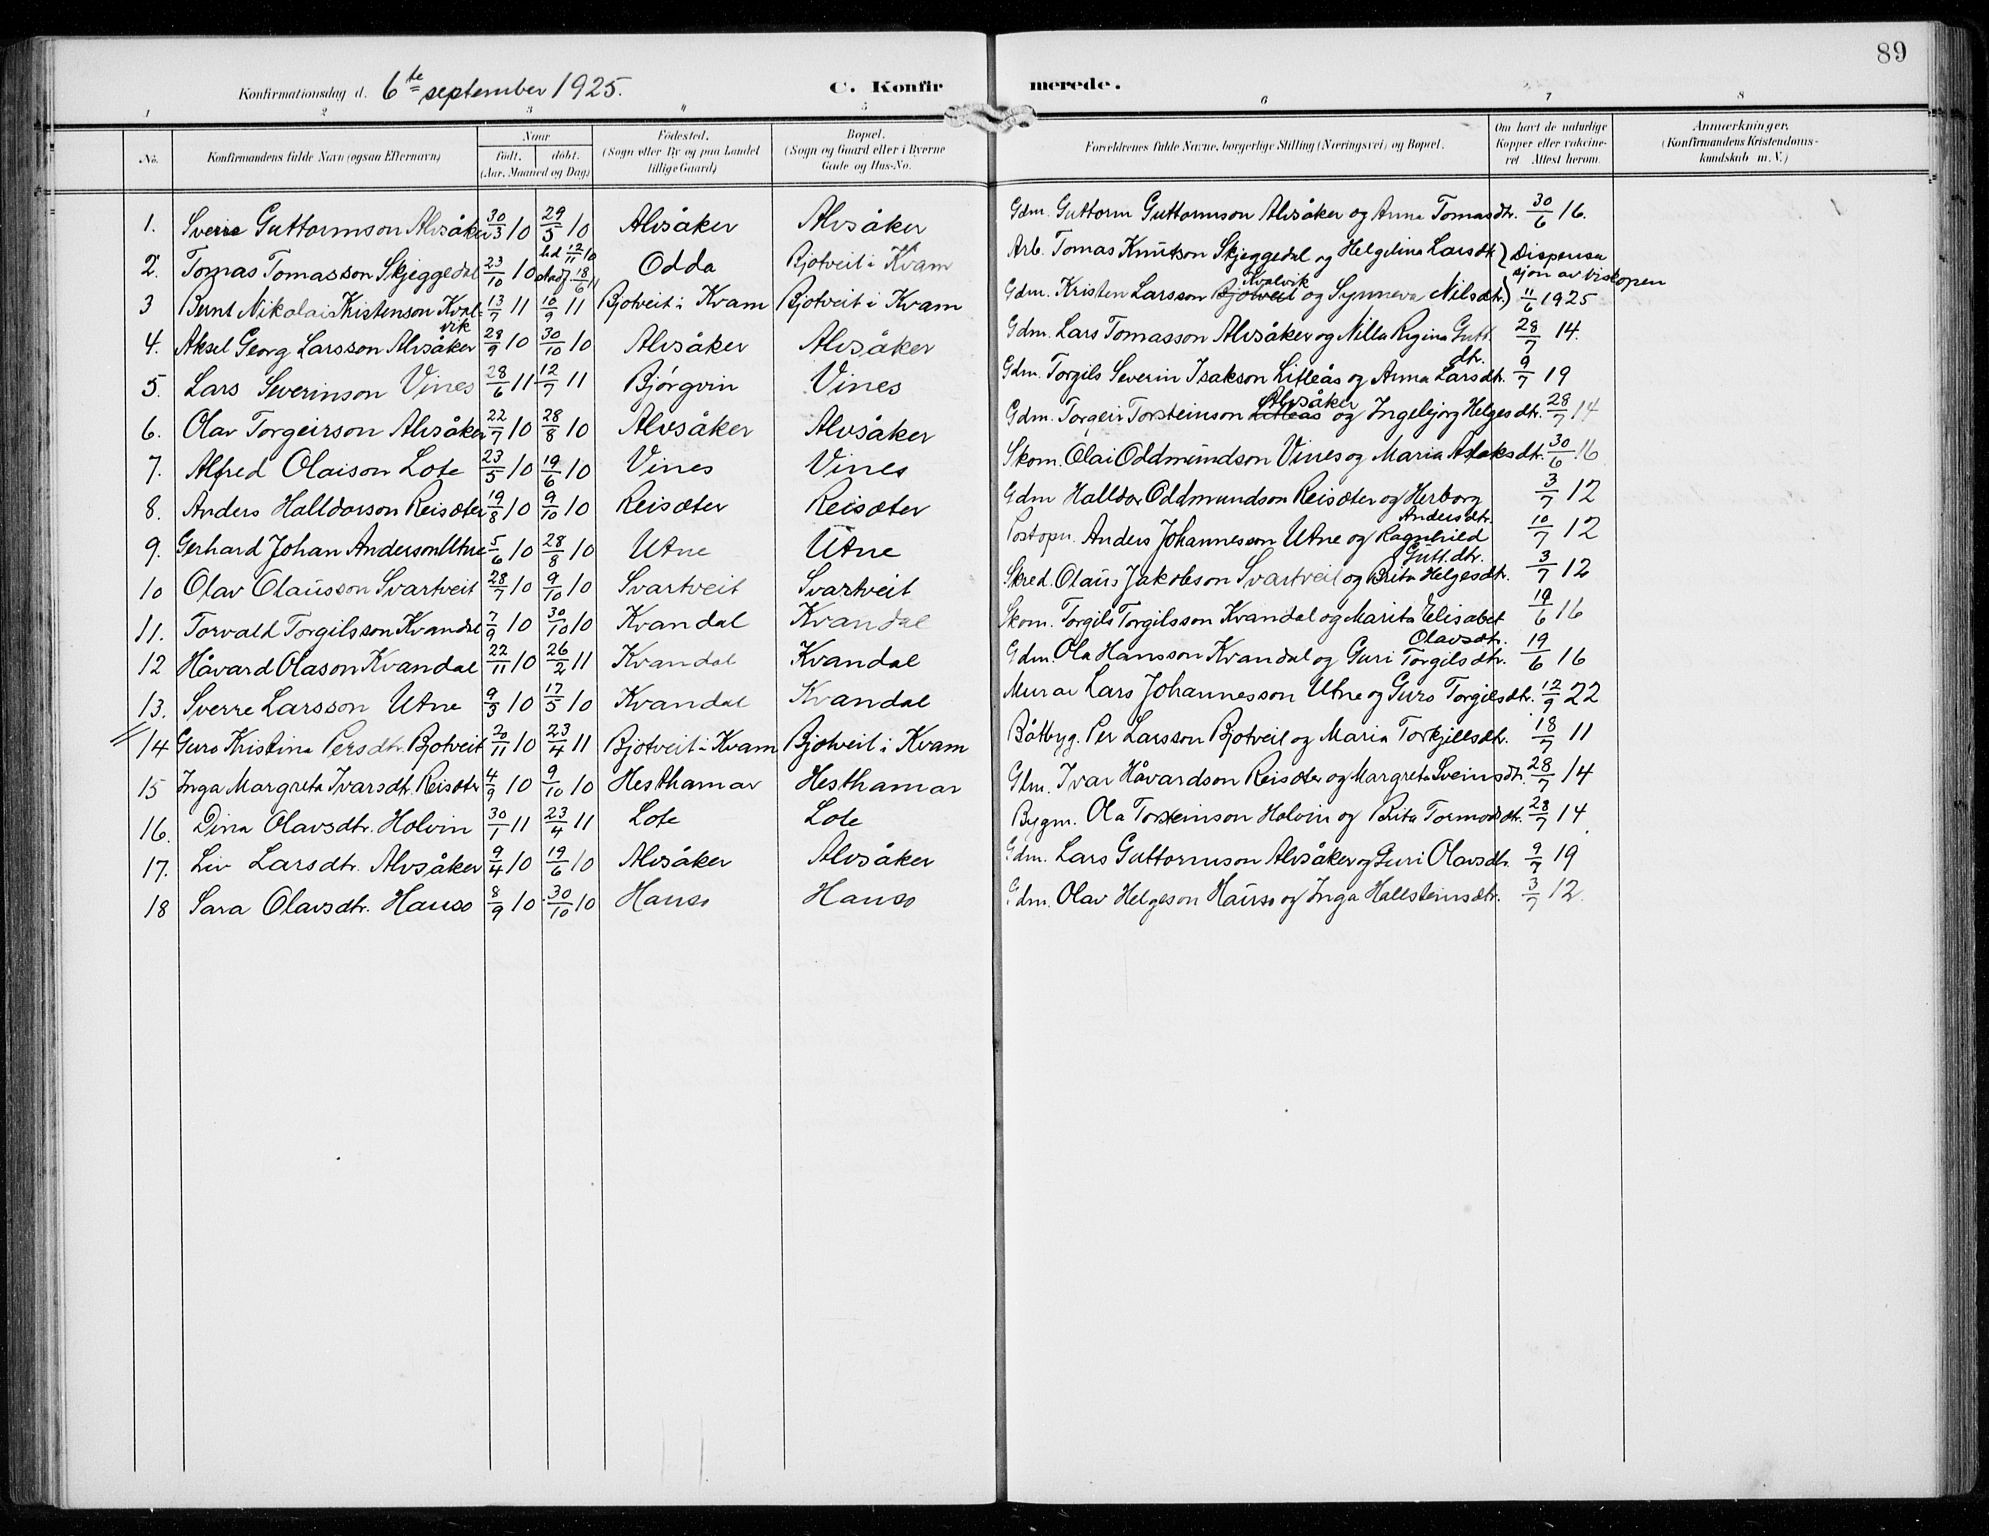 89
Konfirmationsdag d. 6te september 1925. C. Konfirmerede.
1 2 3 4 5 6 7 8
No. Konfirmandens fulde Navn (ogsaa Efternavn) Naar født. døbt. (Aar, Maaned og Dag) Fødested. (Sogn eller By og paa Landet tillige Gaard) Bopæl. (Sogn og Gaard eller i Byerne Gade og Hus-No. Forældrenes fulde Navne, borgerlige Stilling (Næringsvei) og Bopæl. Om havt de naturlige Kopper eller vakcineret. Attest herom. Anmerkninger. (Konfirmandens Kristendomskundskab m. V.)
1. Sverre Guttormson Alvsåker 30/3 10 29/5 10 Alvsåker Alvsåker Gdm. Guttorm Guttormson Alvsåker og Anna Tomasdtr. 30/6 16.
2. Tomas Tomasson Skjeggedal 23/10 10 hd 12/11 10 stadf. 18/6 11 Odda Bjotveit i Kvam Arb. Tomas Knutson Skjeggedal og Helgelina Larsdtr } Dispensasjon av biskopen
3 Bernt Nikolai Kristenson Kvalvik 13/7 11 10/9 11 Bjotveit i Kvam Bjotveit i Kvam Gdm. Kristen Larsson Bjotveit Kvalvik og Synneva Nilsdtr. } 11/6 1925
4. Aksel Georg Larsson Alvsåker 28/9 10 30/10 10 Alvsåker Alvsåker Gdm. Lars Tomasson Alvsåker og Nilla Regina Gutt.dtr. 28/7 14.
5. Lars Severinson Vines 28/6 11 12/7 11 Bjørgvin Vines Gdm. Torgils Severin Isakson Litleås og Anna Larsdtr. 9/7 19
6. Olav Torgeirson Alvsåker 22/7 10 28/8 10 Alvsåker Alvsåker Gdm. Torgeir Torsteinson Litleås Alvsåker og Ingebjorg Helgesdtr. 28/7 14
7. Alfred Olaison Lote 23/5 10 19/6 10 Vines Vines Skom. Olai Oddmundson Vines og Maria Aslaksdtr. 30/6 16
8. Anders Halldorson Reisæter 19/8 10 9/10 10 Reisæter Reisæter Gdm Halldor Oddmundson Reisæter og Herborg Andersdtr. 3/7 12
9. Gerhard Johan Anderson Utne 5/6 10 28/8 10 Utne Utne Postopn. Anders Johannesson Utne og Ragnhild Gutt.dtr. 10/7 12
10 Olav Olausson Svartveit 28/7 10 9/10 10 Svartveit Svartveit Skred. Olaus Jakobson Svartveit og Brita Helgesdtr. 3/7 12
11. Torvald Torgilsson Kvandal 7/9 10 30/10 10 Kvandal Kvandal Skom. Torgils Torgilsson Kvandal og Marita Elisabet Olavsdtr. 19/6 16
12 Håvard Olason Kvandal 22/11 10 26/2 11 Kvandal Kvandal Gdm. Ola Hansson Kvandal og Guri Torgilsdtr. 19/6 16
13. Sverre Larsson Utne 9/3 10 17/5 10 Kvandal Kvandal Murar Lars Johannesson Utne og Guro Torgilsdtr. 12/9 22
14 Guro Kristina Persdtr. Bjotveit 20/11 10 23/4 11 Bjotveit i Kvam Bjotveit i Kvam Båtbyg. Per Larsson Bjotveit og Maria Torkjellsdtr. 18/7 11
15 Inga Margreta Ivarsdtr. Reisæter 4/9 10 9/10 10 Hesthamar Hesthamar Gdm. Ivar Håvardson Reisæter og Margreta Sveinsdtr. 28/7 14
16. Dina Olavsdtr. Holvin 30/1 11 23/4 11 Lote Lote Bygm. Ola Torsteinson Holvin og Brita Tormodsdtr. 28/7 14
17. Liv Larsdtr. Alvsåker 9/4 10 19/6 10 Alvsåker Alvsåker Gdm. Lars Guttormson Alvsåker og Guri Olavsdtr. 9/7 19
18 Sara Olavsdtr. Hauso 8/9 10 30/10 10 Hauso Hauso Gdm. Olav Helgeson Hauso og Inga Hallsteinsdtr. 3/7 12.